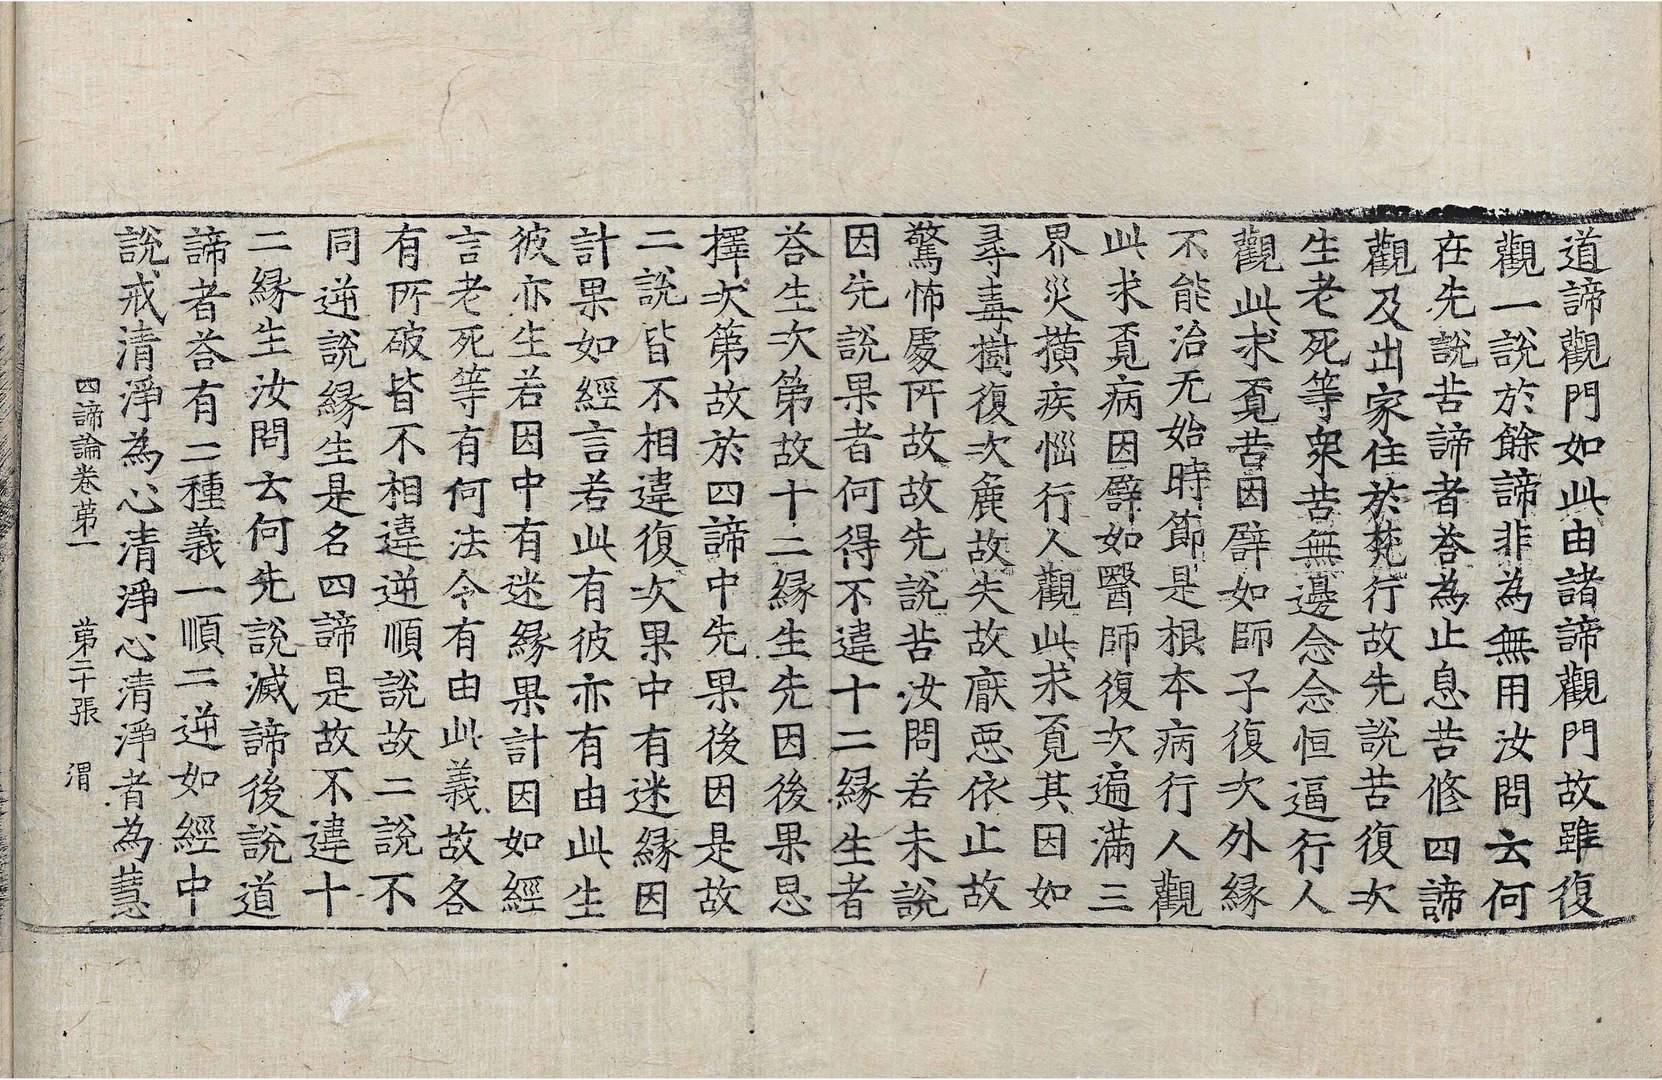 道諦觀門如此由諸諦觀門故雖復
觀一說於餘諦非為無用汝問云何
在先說苦諦者荅為止息苦修四諦
觀及出家住於梵行故先說苦復次
生老死等衆苦無邊念念恒逼行人
觀此求覔苦因譬如師子復次外緣
不能治无始時節是根本病行人觀
此求覔病因譬如醫師復次遍滿三
界災橫疾惱行人觀此求覔其因如
尋毒樹復次麁故失故厭惡依止故
驚怖處所故故先說苦汝問若未說
因先說果者何得不違十二緣生者
荅生次第故十二緣生先因後果思
擇次第故於四諦中先果後因是故
二說皆不相違復次果中有迷緣因
計果如經言若此有彼亦有由此生
彼亦生若因中有迷緣果計因如經
言老死等有何法令有由此義故各
有所破皆不相違逆順說故二說不
同逆說緣生是名四諦是故不違十
二緣生汝問云何先說滅諦後說道
諦者荅有二種義一順二逆如經中
說戒清淨為心清淨心清淨者為慧
四諦論卷第一 第二十張 渭